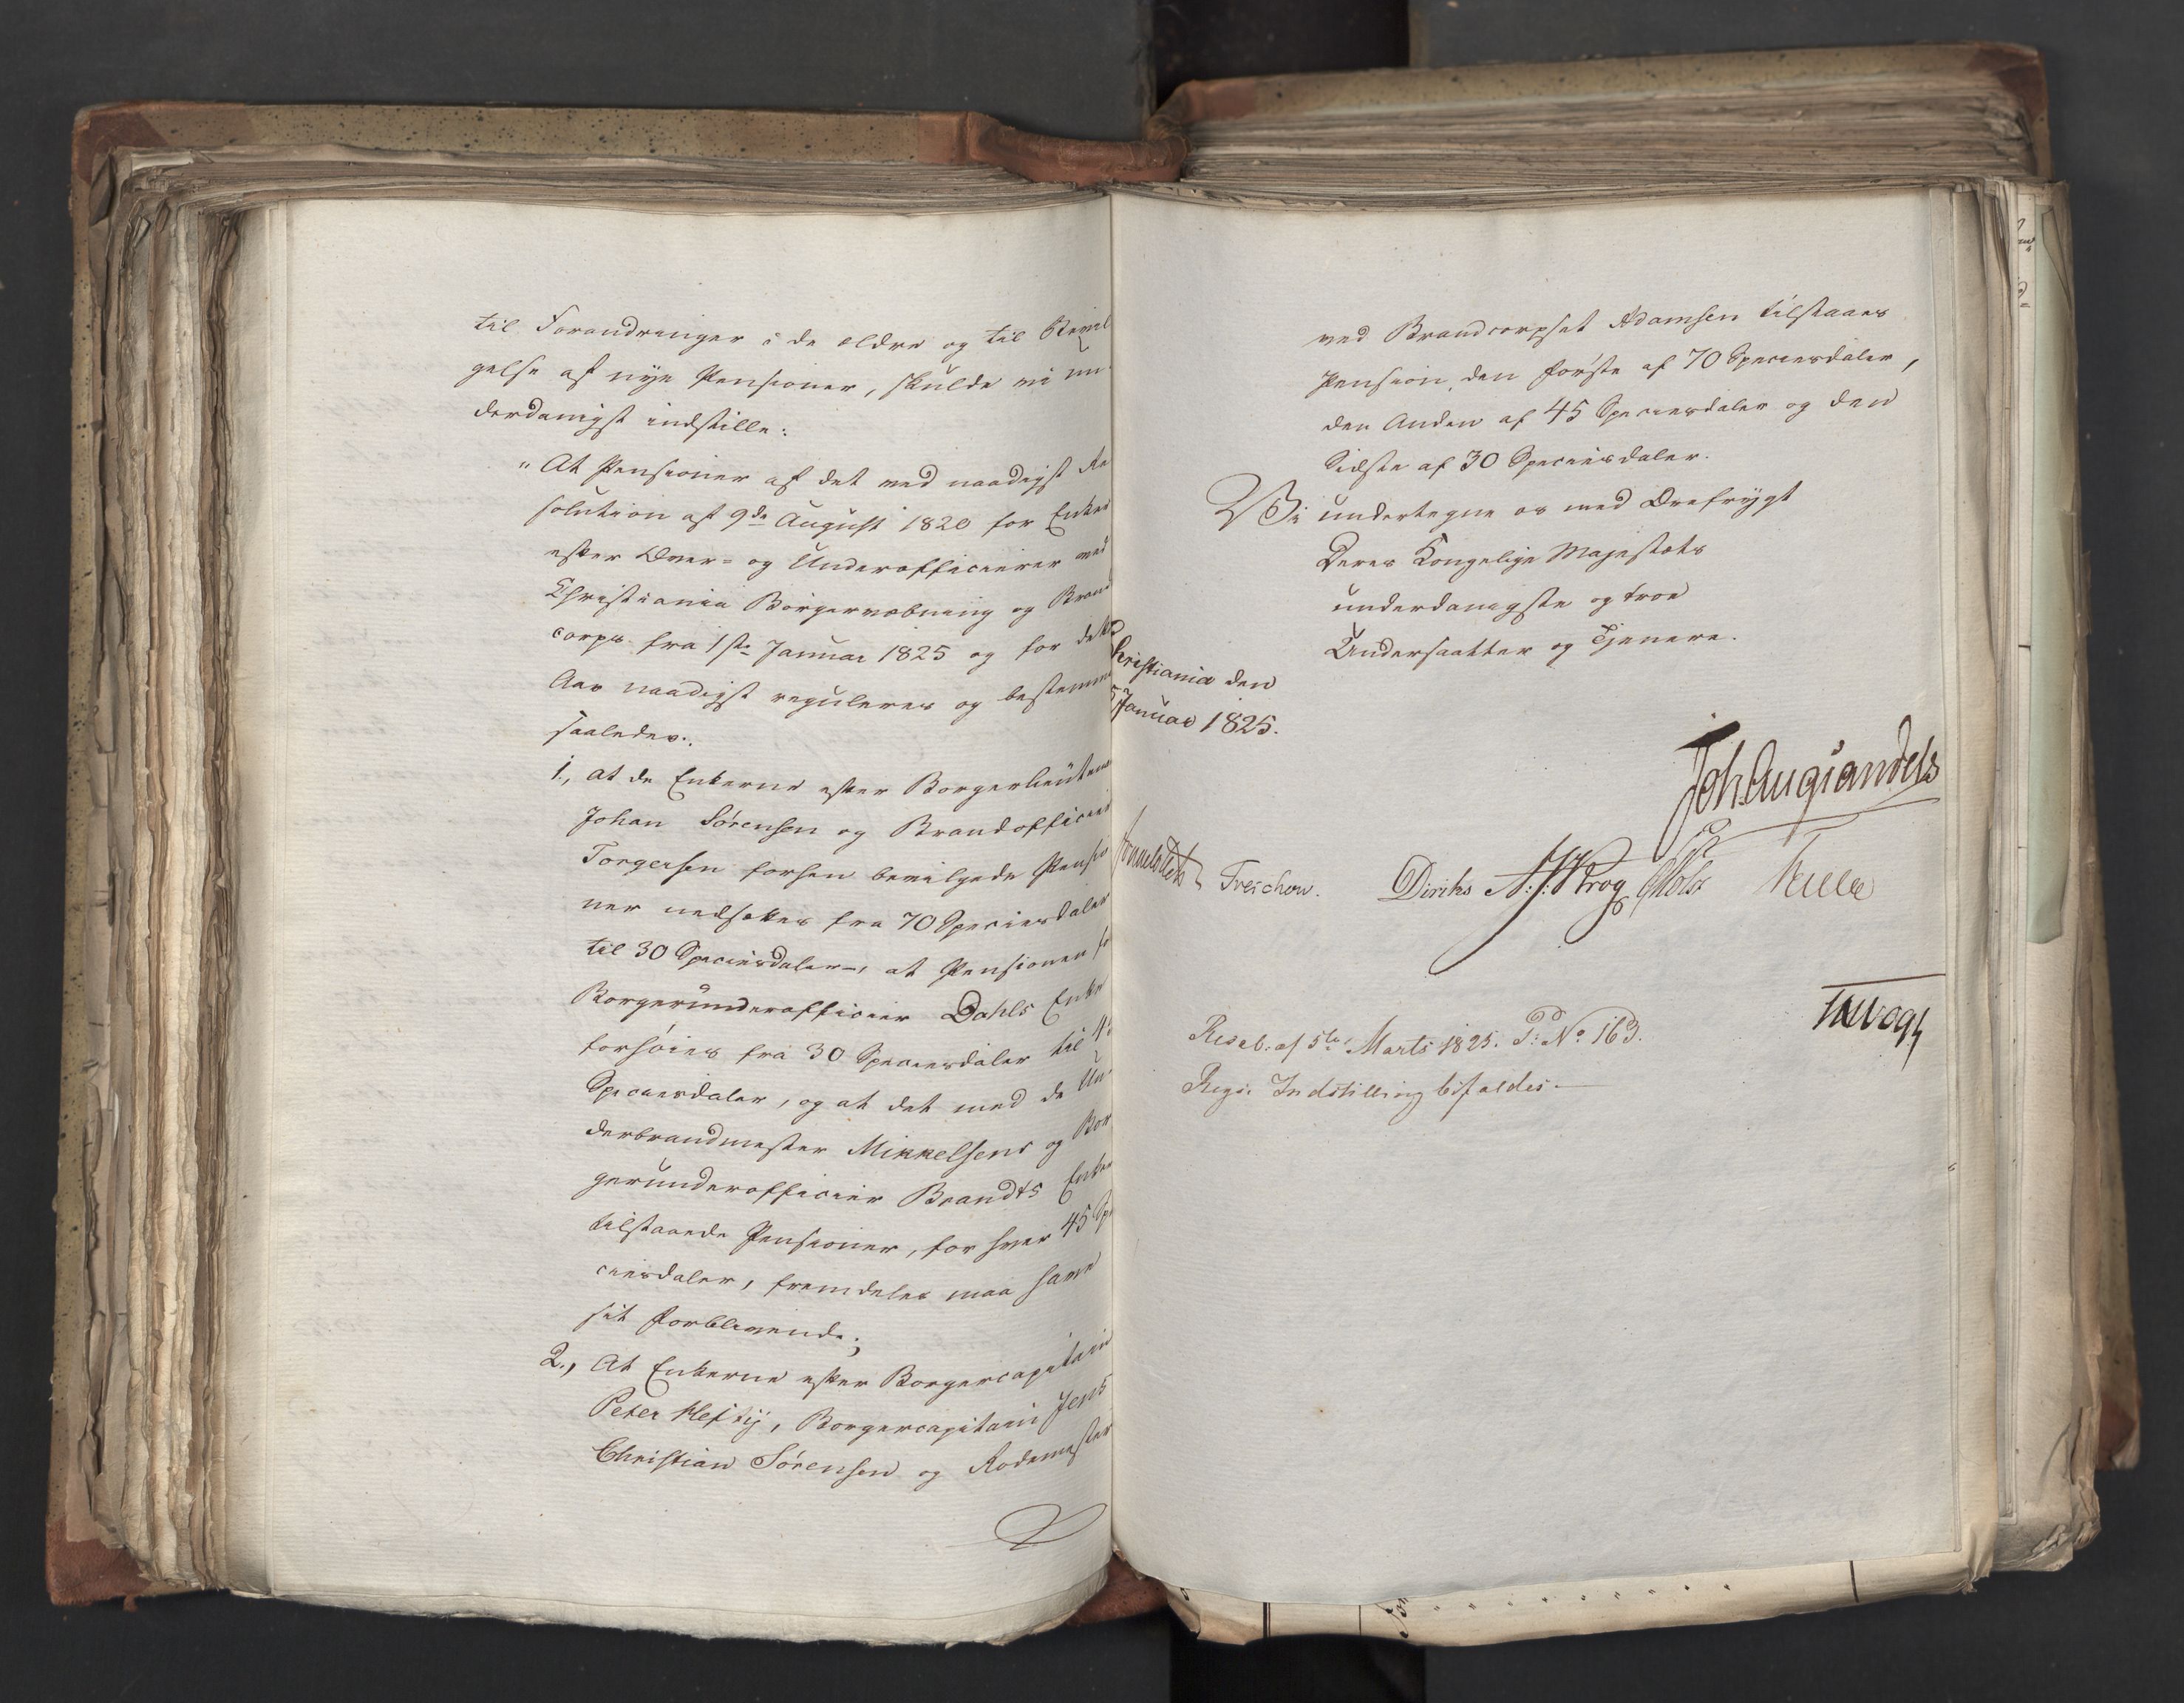 til Forandringer i de ældre og til Bevil
gelse af nye Pensioner, skulde vi un-
derdanigst indstille:
"At Pensioner af det ved naadigst Re
solution af 9de August 1820 for Enker
efter Over- og Underofficierer ved
Christiania Borgervæbning og Brand
corps fra 1ste Januar 1825 og for dette
Aar naadigst reguleres og bestemmes
saaledes:
1., at de Enkerne efter Borgerlieutenant
Johan Sørensen og Brandofficier
Torgersen forhen bevilgede Pensio
ner nedsættes fra 70 Speciesdaler
til 30 Speciesdaler, at Pensionen for
Borgerunderofficier Dahls Enke
forhøies fra 30 Speciesdaler til 45
Speciesdaler, og at det med de Un-
derbrandmester Mikkelsens og Bor
gerunderofficier Brandts Enker
tilstaaede Pensioner, for hver 45 Spe
ciesdaler, fremdeles maa have
sit Forblivende;
2., At Enkerne efter Borgercapitain
Peter Heftÿ, Borgercapitain Jens
Christian Sørensen og Rodemester
ved Brandcorpset Adamsen tilstaaes
Pension, den første af 70 Speciesdaler,
den Anden af 45 Speciesdaler og den
Sidste af 30 Speciesdaler.
Vi undertegne os med Ærefrygt
Deres Kongelige Majestæts
underdanigste og troe
Undersaatter og Tjenere.
Christiania den
5 Januar 1825.
Joh. Aug. Sandels
Sommerfeldt Treschow. Diriks A: J: Krog P Holst
T Vogt
Resol. af 5te Marts 1825. P: No 163.
Regs. Indstilling bifaldes.